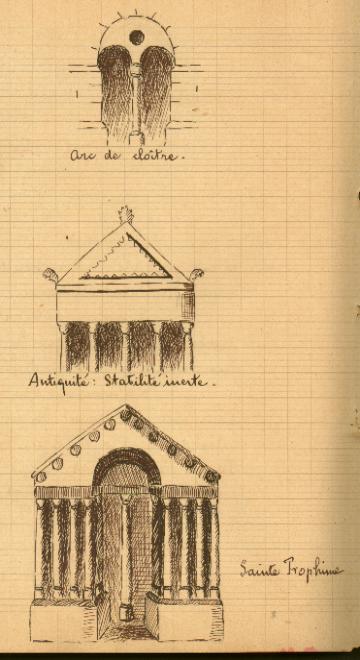 Arc de cloître.
Antiquité: Stabilité inerte.
Sainte Trophime